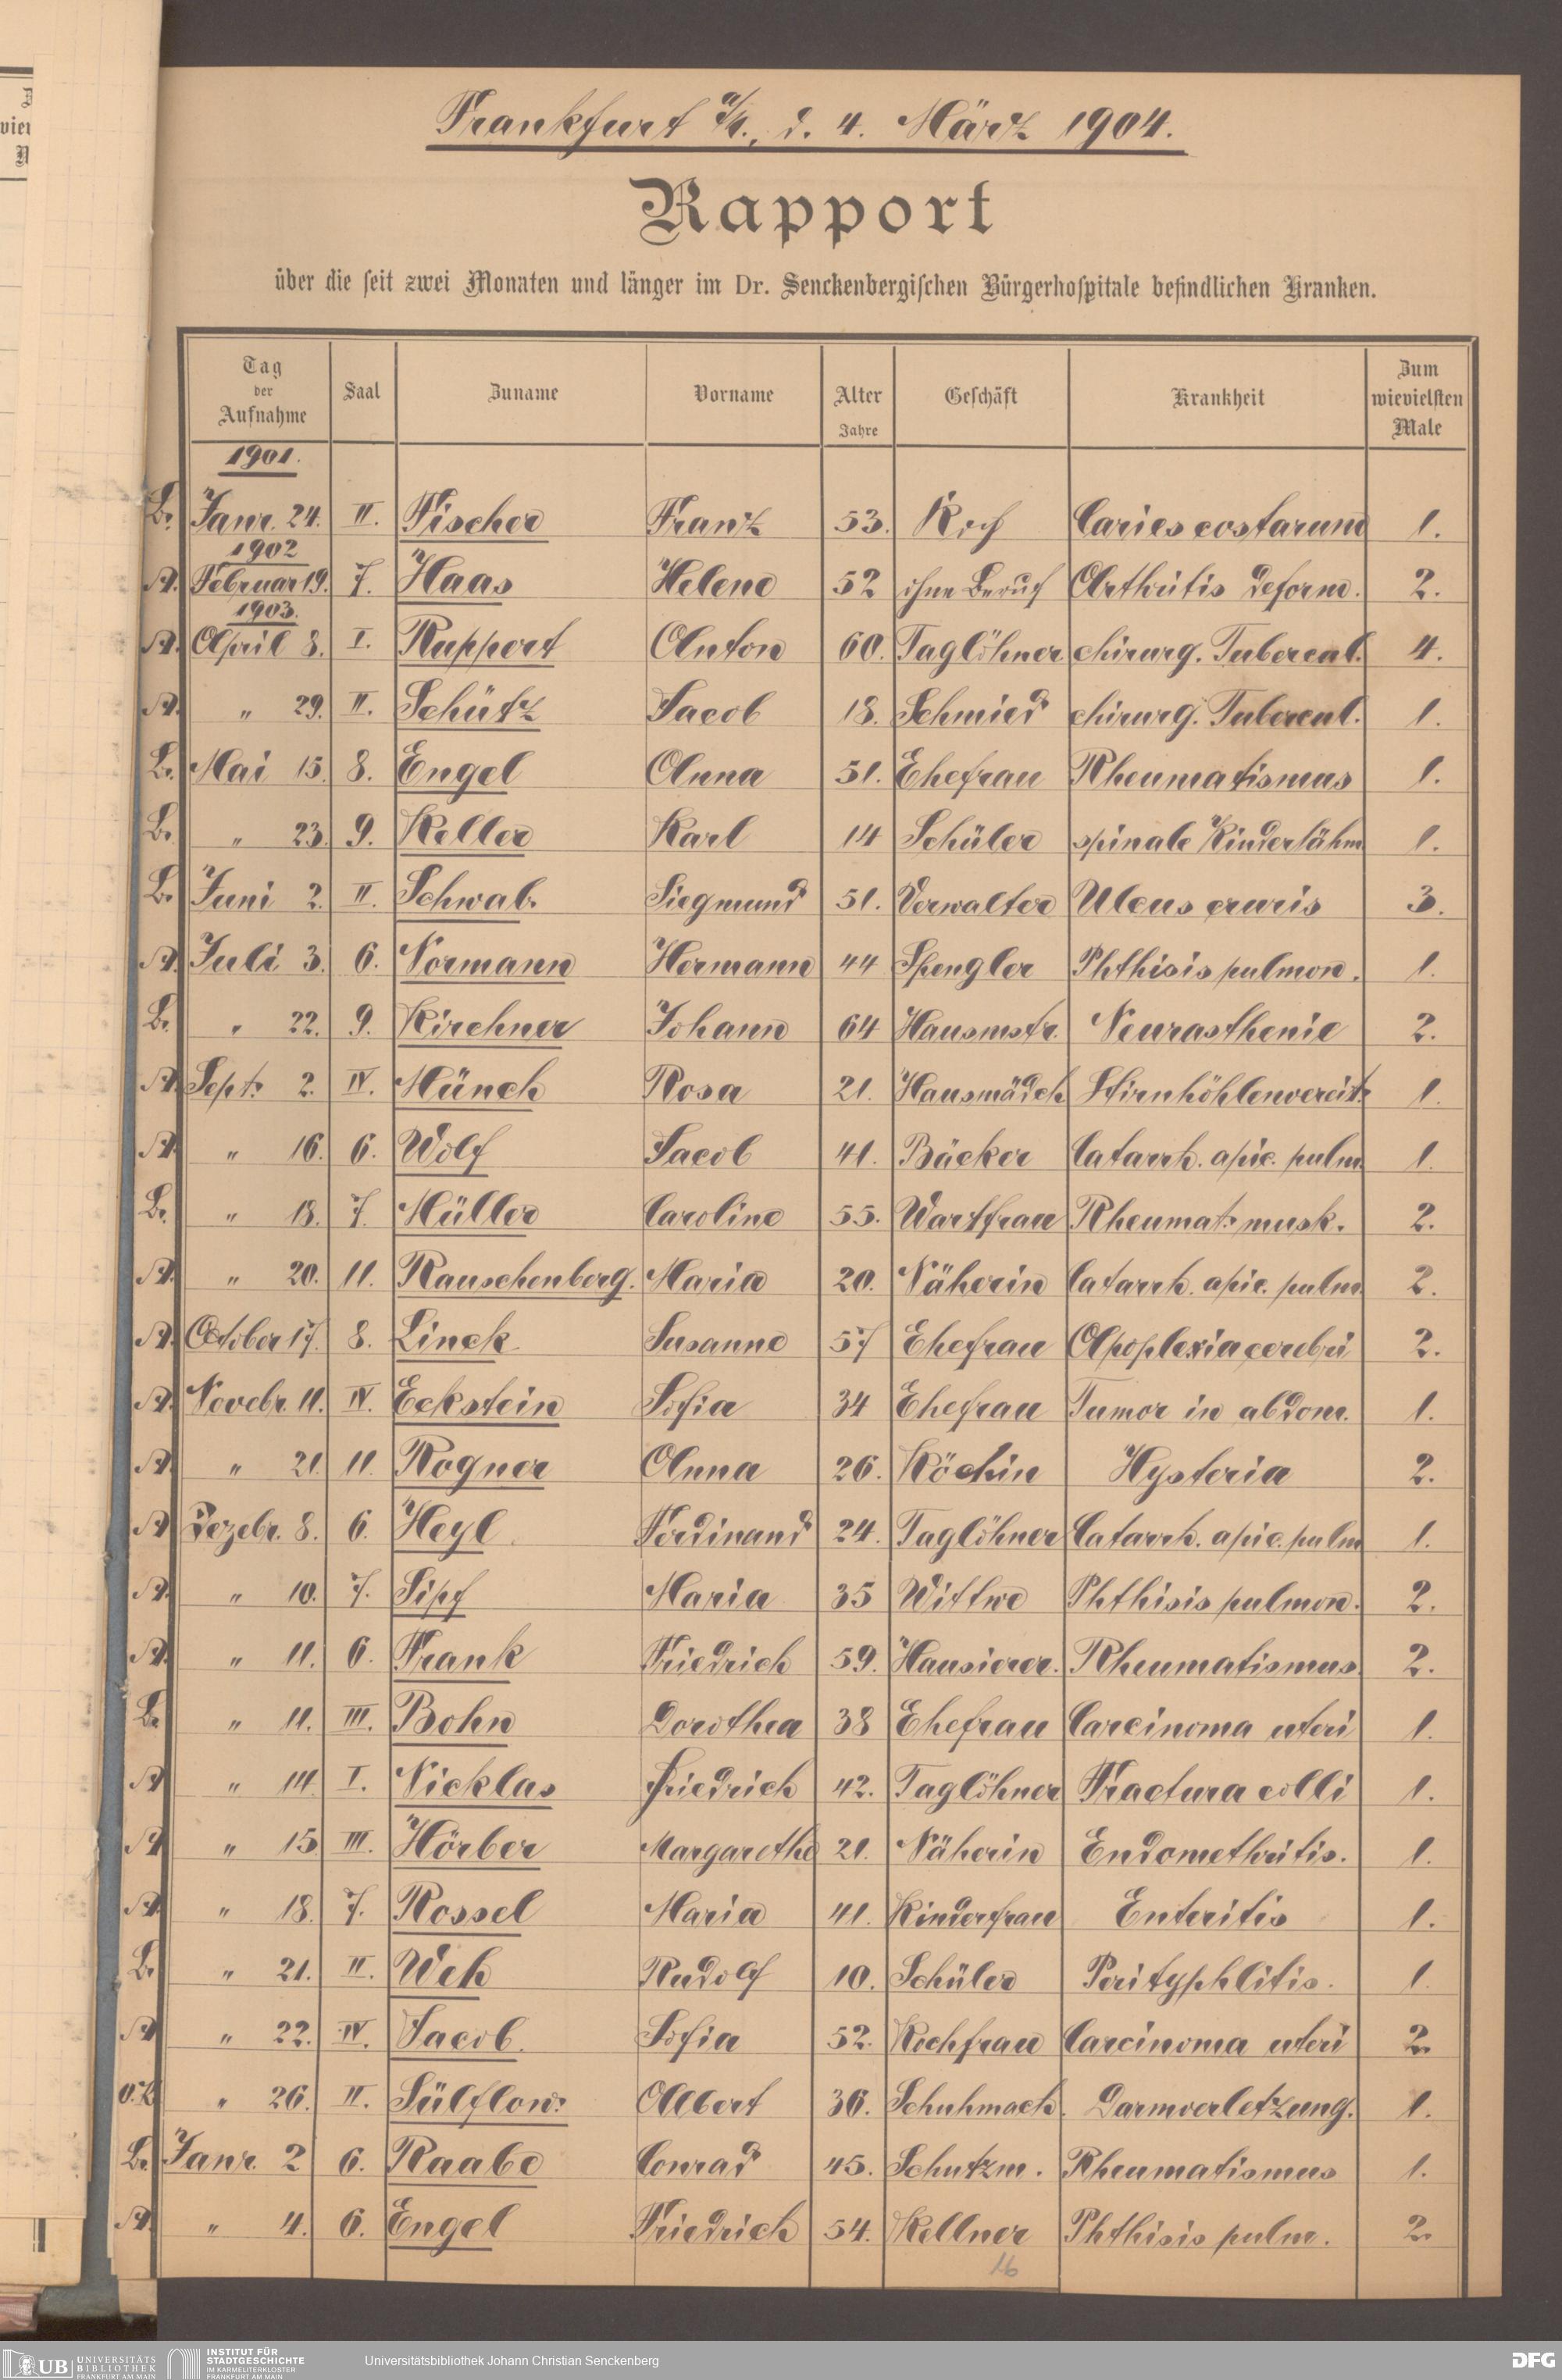 Frankfurt a/M., d. 4. März 1904.
Rapport
über die seit zwei Monaten und länger im Dr. Senckenbergischen Bürgerhospitale befindlichen Kranken.
Tag der Aufnahme Saal Zuname Vorname Alter Jahre Geschäft Krankheit Zum wievielsten Male
1901.
Br. Janr. 24. II. Fischer Franz 53. Koch Caries costarum 1.
1902
A. Februar 19. 7. Haas Helene 52 ohne Beruf Arthritis deform. 2.
1903.
A. April 8. I. Ruppert Anton 60. Taglöhner chirurg. Tubercul. 4.
A. " 29. II. Schütz Jacob 18. Schmied chirurg. Tubercul. 1.
Br. Mai 15. 8. Engel Anna 51. Ehefrau Rheumatismus 1.
Br. " 23. 9. Keller Karl 14 Schüler spinale Kinderlähm 1.
Br. Juni 2. II. Schwab. Siegmund 51. Verwalter Ulcus cruris 3.
A. Juli 3. 6. Normann Hermann 44 Spengler Phthisis pulmon. 1.
Br. " 22. 9. Kirchner Johann 64 Hausmstr. Neurasthenie 2.
A. Sept. 2. IV. Münch Rosa 21. Hausmädch Stirnhöhlenvereit. 1.
A. " 16. 6. Wolf Jacob 41. Bäcker Catarrh. apic. pulm. 1.
Br. " 18. 7. Müller Caroline 55. Wartfrau Rheumat. musk. 2.
A. " 20. 11. Rauschenberg. Maria 20. Näherin Catarrh. apic. pulm. 2.
A. October 17. 8. Linck Susanne 57 Ehefrau Apoplexia cerebri 2.
A. Novebr. 11. IV. Eckstein Sofia 34 Ehefrau Tumor in abdom. 1.
A. " 21. 11. Rogner Anna 26. Köchin Hysteria 2.
A. Dezebr. 8. 6. Heyl Ferdinand 24. Taglöhner Catarrh. apic. pulm 1.
A. " 10. 7. Sipf Maria 35 Wittwe Phthisis pulmon. 2.
A. " 11. 6. Frank Friedrich 59. Hausierer. Rheumatismus. 2.
Br. " 11. III. Bohn Dorothea 38 Ehefrau Carcinoma uteri 1.
A. " 14. I. Nicklas Friedrich 42. Taglöhner Fractura colli 1.
A. " 15 III. Hörber Margarethe 21. Näherin Endomethritis. 1.
A. " 18. 7. Rossel Maria 41. Kinderfrau Enteritis 1.
Br. " 21. II. Weh Rudolf 10. Schüler Perityphlitis. 1.
A. " 22. IV. Jacob. Sofia 52. Kochfrau Carcinoma uteri 2.
" 26. II. Sülflow. Albert 36. Schuhmach. Darmverletzung. 1.
Br. Janr. 2 6. Raabe Conrad 45. Schutzm. Rheumatismus 1.
A. " 4. 6. Engel Friedrich 54. Kellner Phthisis pulm. 2.
16
UB UNIVERSITÄTS BIBLIOTHEK FRANKFURT AM MAIN
INSTITUT FÜR STADTGESCHICHTE IM KARMELITERKLOSTER FRANKFURT AM MAIN
Universitätsbibliothek Johann Christian Senckenberg
DFG